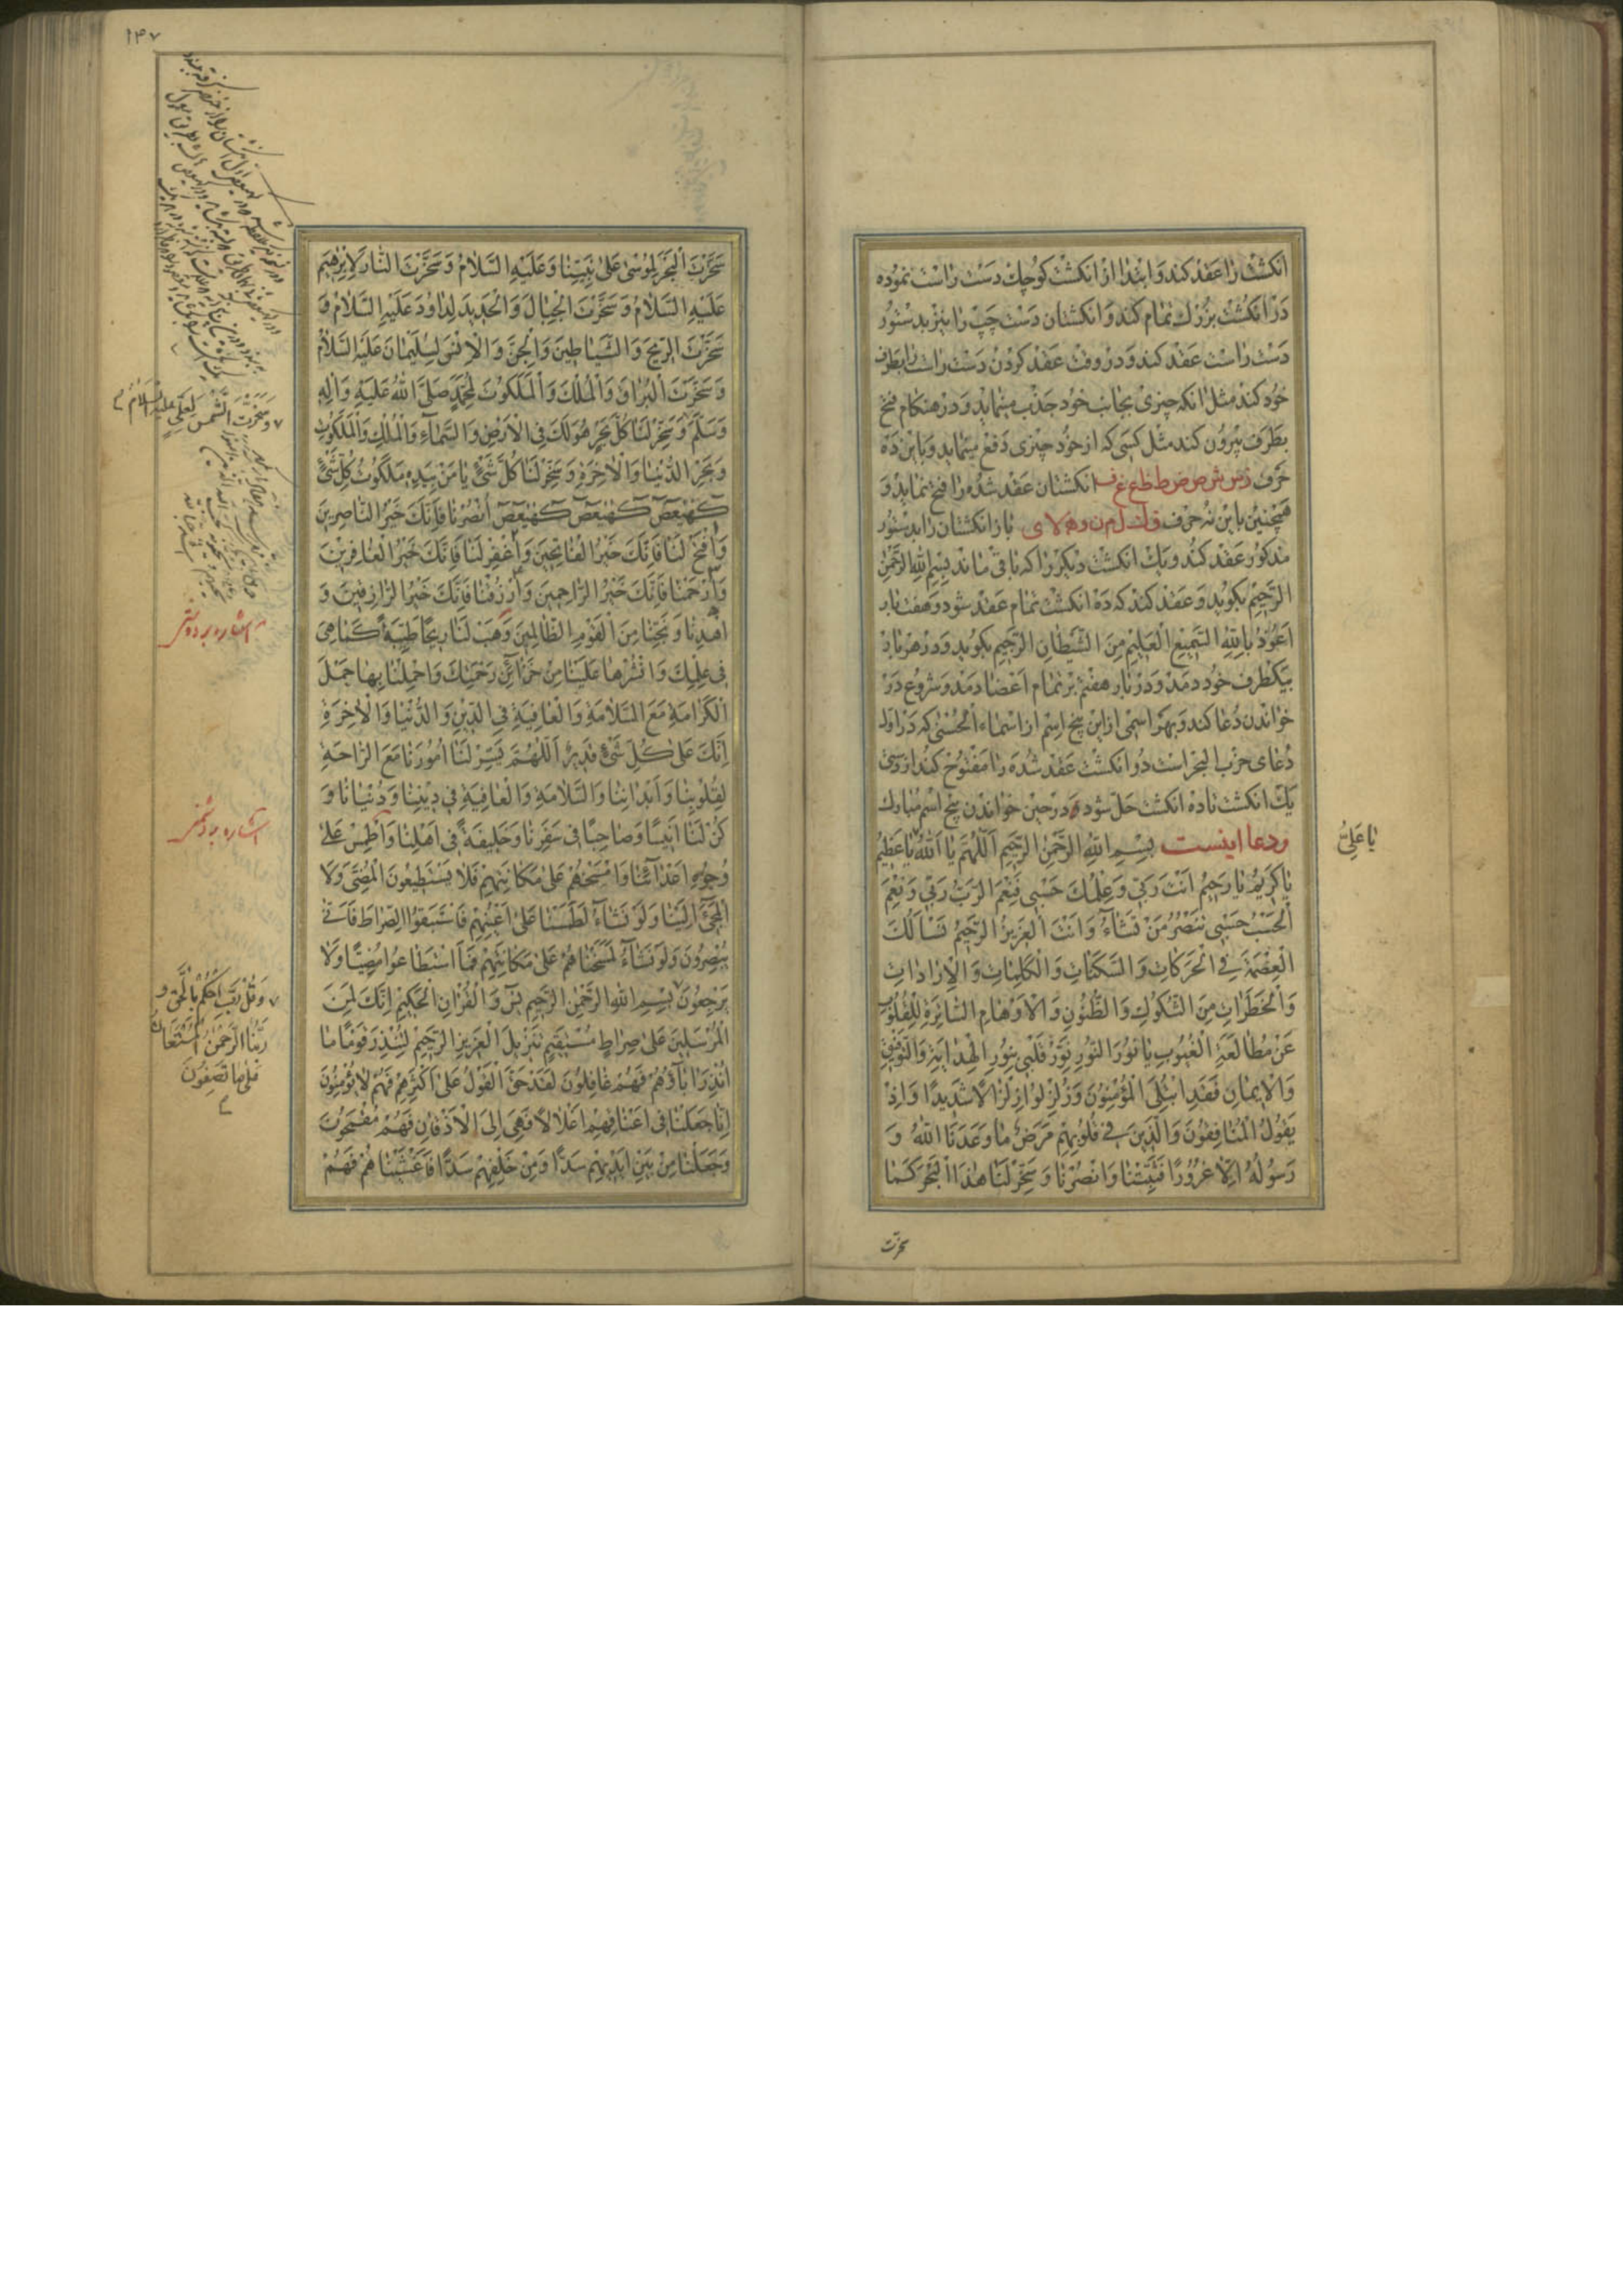 انکشتانرا عقد کند و ابتدا از انکشت کوچک دست راست نموده
در انکشت بزرک تمام کند و انکشتان دست چپ را نیز بدستور
دست راست عقد کند و در وقت عقد کردن دست راست را بطرف
خود کند مثل انکه چیزی بجانب خود جذب مینماید و در هنکام فتح
بطرف بیرون کند مثل کسی که از خود چیزی دفع مینماید و باین ده
حرف ز س ش ص ض ط ظ ع غ ف انکشتان عقد شده را فتح نماید و
همچنین باین نه حرف ق ک ل م ن و ه لا ی باز انکشتان را بدستور
مذکور عقد کند و یک انکشت دیکر را که باقی ماند بِسْمِ اللهِ الرَّحْمٰنِ
الرَّحِیْمِ بکوید و عقد کند که ده انکشت تمام عقد شود و هفت بار
اَعُوْذُ بِاللهِ السَّمِیْعِ الْعَلِیْمِ مِنَ الشَّیْطَانِ الرَّجِیْمِ بکوید و در هر بار
بیکطرف خود دمد و در بار هفتم بر تمام اعضا دمد و شروع در
خواندن دعا کند و بهر اسمی از این پنج اسم از اسماء الحسنی که در اول
دعای حزب البحر است دو انکشت عقد شده را مفتوح کند از روی
یک انکشت تا ده انکشت حل شود و در حین خواندن پنج اسم مبارک
ودعا اینست بِسْمِ اللهِ الرَّحْمٰنِ الرَّحِیْمِ اَللّٰهُمَّ یَا اَللهُ یَا عَظِیْمُ
یَا عَلِیُّ
یَا کَرِیْمُ یَا رَحِیْمُ اَنْتَ رَبِّی وَعِلْمُکَ حَسْبِی فَنِعْمَ الرَّبُّ رَبِّی وَنِعْمَ
الْحَسْبُ حَسْبِی تَنْصُرُ مَنْ تَشَاءُ وَاَنْتَ الْعَزِیْزُ الرَّحِیْمُ نَسْاَلُکَ
الْعِصْمَةَ فِی الْحَرَکَاتِ وَالسَّکَنَاتِ وَالْکَلِمَاتِ وَالْاِرَادَاتِ
وَالْخَطَرَاتِ مِنَ الشُّکُوْکِ وَالظُّنُوْنِ وَالْاَوْهَامِ السَّاتِرَةِ لِلْقُلُوْبِ
عَنْ مُطَالَعَةِ الْغُیُوْبِ یَا نُوْرَ النُّوْرِ نَوِّرْ قَلْبِی بِنُوْرِ الْهِدَایَةِ وَالتَّوْفِیْقِ
وَالْاِیْمَانِ فَقَدِ ابْتُلِیَ الْمُؤْمِنُوْنَ وَزُلْزِلُوْا زِلْزَالًا شَدِیْدًا وَاِذْ
یَقُوْلُ الْمُنَافِقُوْنَ وَالَّذِیْنَ فِی قُلُوْبِهِمْ مَرَضٌ مَا وَعَدَنَا اللهُ وَ
رَسُوْلُهُ اِلَّا غُرُوْرًا فَثَبِّتْنَا وَانْصُرْنَا وَسَخِّرْ لَنَا هٰذَا الْبَحْرَ کَمَا
سخرت
۱۴۷
سَخَّرْتَ الْبَحْرَ لِمُوْسٰی عَلٰی نَبِیِّنَا وَعَلَیْهِ السَّلَامُ وَسَخَّرْتَ النَّارَ لِاِبْرٰهِیْمَ
عَلَیْهِ السَّلَامُ وَسَخَّرْتَ الْجِبَالَ وَالْحَدِیْدَ لِدَاوُدَ عَلَیْهِ السَّلَامُ وَ
سَخَّرْتَ الرِّیْحَ وَالشَّیَاطِیْنَ وَالْجِنَّ وَالْاِنْسَ لِسُلَیْمَانَ عَلَیْهِ السَّلَامُ
وَسَخَّرْتَ الْبُرَاقَ وَالْمُلْکَ وَالْمَلَکُوْتَ لِمُحَمَّدٍ صَلَّی اللهُ عَلَیْهِ وَاٰلِهِ
وَسَخَّرْتَ الشَّمْسَ لِعَلِیٍّ عَلَیْهِ السَّلَامُ
وَسَلَّمَ وَسَخِّرْ لَنَا کُلَّ بَحْرٍ هُوَ لَکَ فِی الْاَرْضِ وَالسَّمَاءِ وَالْمُلْکِ وَالْمَلَکُوْتِ
وَبَحْرَ الدُّنْیَا وَالْاٰخِرَةِ وَسَخِّرْ لَنَا کُلَّ شَیْءٍ یَا مَنْ بِیَدِهِ مَلَکُوْتُ کُلِّ شَیْءٍ
کٓهٰیٰعٓصٓ کٓهٰیٰعٓصٓ کٓهٰیٰعٓصٓ اُنْصُرْنَا فَاِنَّکَ خَیْرُ النَّاصِرِیْنَ
وَافْتَحْ لَنَا فَاِنَّکَ خَیْرُ الْفَاتِحِیْنَ وَاغْفِرْ لَنَا فَاِنَّکَ خَیْرُ الْغَافِرِیْنَ
وَارْحَمْنَا فَاِنَّکَ خَیْرُ الرَّاحِمِیْنَ وَارْزُقْنَا فَاِنَّکَ خَیْرُ الرَّازِقِیْنَ وَ
اهْدِنَا وَنَجِّنَا مِنَ الْقَوْمِ الظَّالِمِیْنَ وَهَبْ لَنَا رِیْحًا طَیِّبَةً کَمَا هِیَ
فِی عِلْمِکَ وَانْشُرْهَا عَلَیْنَا مِنْ خَزَائِنِ رَحْمَتِکَ وَاحْمِلْنَا بِهَا حَمْلَ
الْکَرَامَةِ مَعَ السَّلَامَةِ وَالْعَافِیَةِ فِی الدِّیْنِ وَالدُّنْیَا وَالْاٰخِرَةِ
اِنَّکَ عَلٰی کُلِّ شَیْءٍ قَدِیْرٌ اَللّٰهُمَّ یَسِّرْ لَنَا اُمُوْرَنَا مَعَ الرَّاحَةِ
لِقُلُوْبِنَا وَاَبْدَانِنَا وَالسَّلَامَةِ وَالْعَافِیَةِ فِی دِیْنِنَا وَدُنْیَانَا وَ
کُنْ لَنَا اَنِیْسًا وَصَاحِبًا فِی سَفَرِنَا وَخَلِیْفَةً فِی اَهْلِنَا وَاطْمِسْ عَلٰی
وُجُوْهِ اَعْدَائِنَا وَامْسَخْهُمْ عَلٰی مَکَانَتِهِمْ فَلَا یَسْتَطِیْعُوْنَ الْمُضِیَّ وَلَا
الْمَجِیْءَ اِلَیْنَا وَلَوْ نَشَاءُ لَطَمَسْنَا عَلٰی اَعْیُنِهِمْ فَاسْتَبَقُوا الصِّرَاطَ فَاَنّٰی
یُبْصِرُوْنَ وَلَوْ نَشَاءُ لَمَسَخْنَاهُمْ عَلٰی مَکَانَتِهِمْ فَمَا اسْتَطَاعُوْا مُضِیًّا وَلَا
یَرْجِعُوْنَ بِسْمِ اللهِ الرَّحْمٰنِ الرَّحِیْمِ یٰسٓ وَالْقُرْاٰنِ الْحَکِیْمِ اِنَّکَ لَمِنَ
وَقُلْ رَبِّ احْکُمْ بِالْحَقِّ وَ
رَبُّنَا الرَّحْمٰنُ الْمُسْتَعَانُ
عَلٰی مَا تَصِفُوْنَ
الْمُرْسَلِیْنَ عَلٰی صِرَاطٍ مُسْتَقِیْمٍ تَنْزِیْلَ الْعَزِیْزِ الرَّحِیْمِ لِتُنْذِرَ قَوْمًا مَا
اُنْذِرَ اٰبَاؤُهُمْ فَهُمْ غَافِلُوْنَ لَقَدْ حَقَّ الْقَوْلُ عَلٰی اَکْثَرِهِمْ فَهُمْ لَا یُؤْمِنُوْنَ
اِنَّا جَعَلْنَا فِی اَعْنَاقِهِمْ اَغْلَالًا فَهِیَ اِلَی الْاَذْقَانِ فَهُمْ مُقْمَحُوْنَ
وَجَعَلْنَا مِنْ بَیْنِ اَیْدِیْهِمْ سَدًّا وَمِنْ خَلْفِهِمْ سَدًّا فَاَغْشَیْنَاهُمْ فَهُمْ